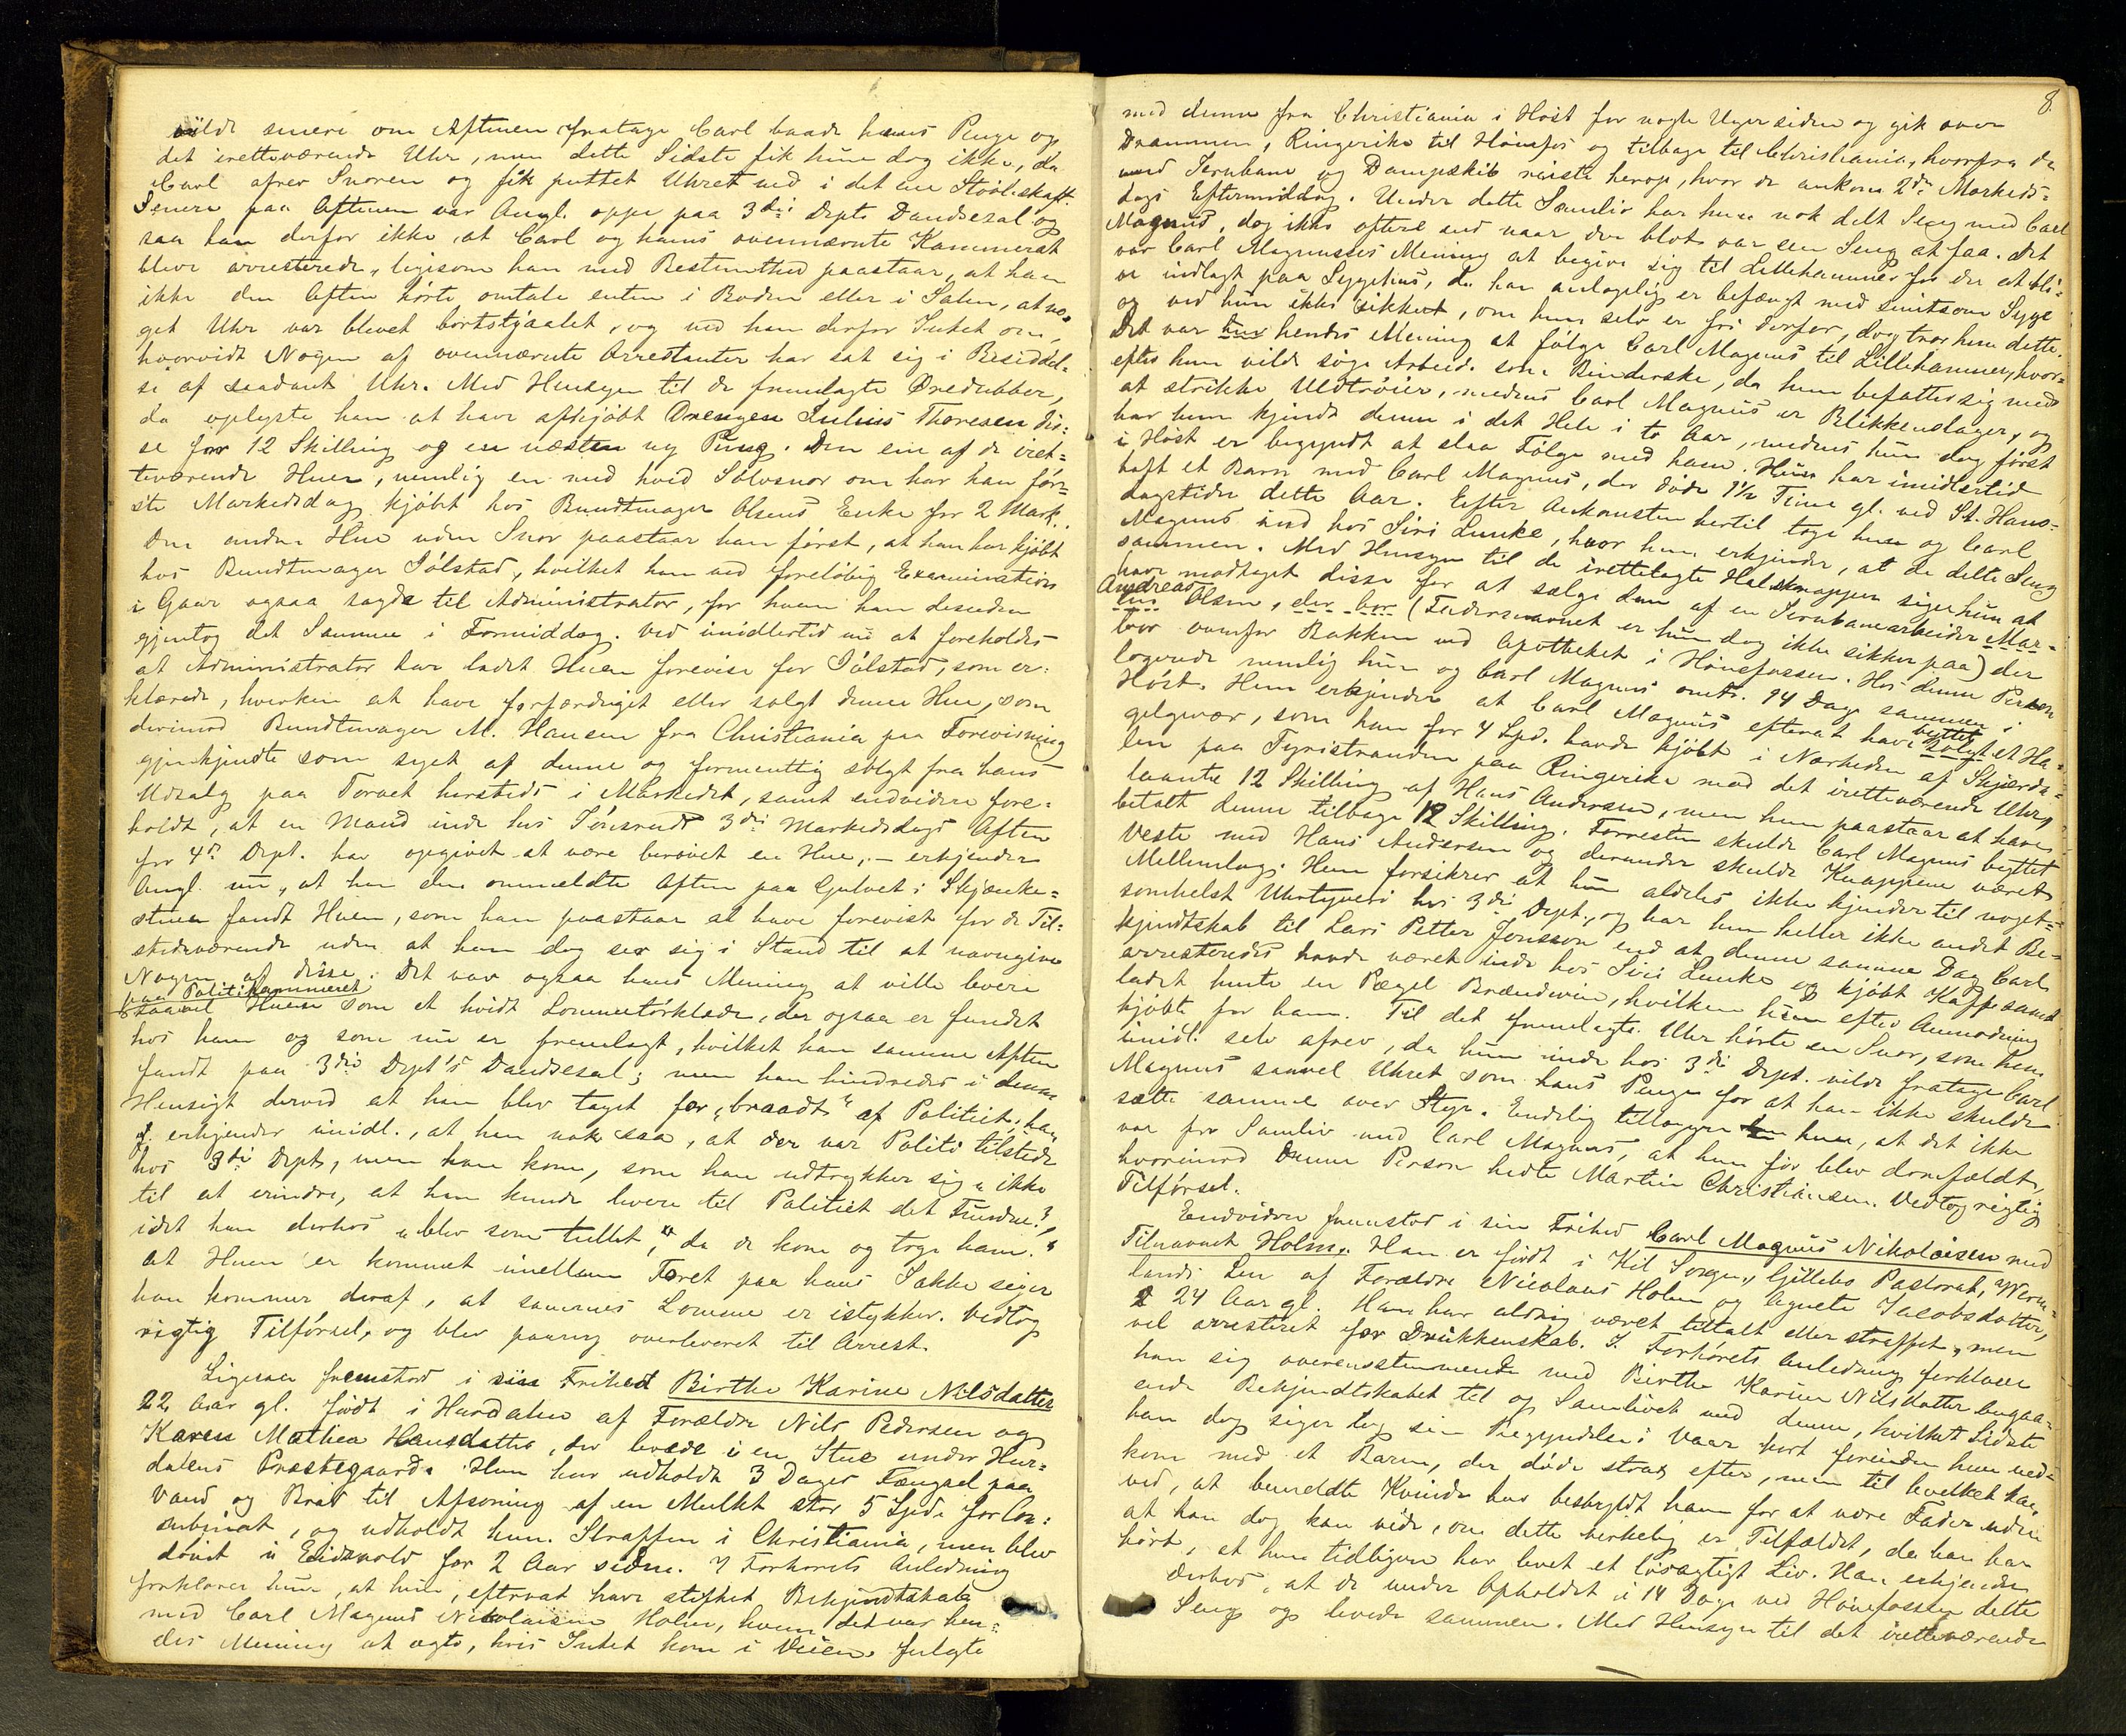 vilde senere om Aftenen fratage Carl baade hans Penge og
det iretteværende Uhr, men dette Sidste fik hun dog ikke, da
Carl afrev Snoren og fik puttet Uhret ned i det ene Støvleskaft.
Senere paa Aftenen var Angl. oppe paa 3die Dpts Dandsesal og
saa han derfor ikke at Carl og hans ovennævnte Kammerat
bleve arresterede, ligesom han med Bestemthed paastaar, at han
ikke den Aften hørte omtale enten i Boden eller i Salen, at no-
get Uhr var blevet bortstjaalet, og ved han derfor Intet om,
hvorvidt Nogen af ovennævnte Arrestanter har sat sig i Besiddel-
se af saadant Uhr. Med Hensyn til de fremlagte Øredubber,
da oplyste han at have afkjøbt Drengen Julius Thoresen dis-
se for 12 Skilling og en næsten ny Pung. Den ene af de iret-
teværende Huer, nemlig en med hvid Sølvsnor om har han før-
ste Markedsdag kjøbt hos Bundtmager Olsens Enke for 2 Mark.
Den anden Hue uden Snor paastaar han først, at han har kjøbt
hos Bundtmager Sølstad, hvilket han ved foreløbig Examination
i Gaar ogsaa sagde til Administrator, for hvem han desuden
gjentog det Samme i Formiddag. Ved imidlertid nu at foreholdes
at Administrator har ladet Huen forevise for Sølstad, som er-
klærede, hverken at have forfærdiget eller solgt denne Hue, som
derimod Bundtmager M. Hansen fra Christiania paa Forevisning
gjenkjendte som syet af denne og formentlig solgt fra hans
Udsalg paa Torvet hersteds i Markedet, samt endvidere fore-
holdt, at en Mand inde hos Tønsrud 3die Markedsdags Aften
for 4de Dpt. har opgivet at være berøvet en Hue, – erkjender
Angl. nu, at han den ommeldte Aften paa Gulvet i Skjænke-
stuen fandt Huen, som han paastaar at have forevist for de Til-
stedeværende uden at han dog ser sig i Stand til at navngive
Nogen af disse. Det var ogsaa hans Mening at ville levere
paa Politikammeret
saavel Huen som et hvidt Lommetørklæde, der ogsaa er fundet
hos ham og som nu er fremlagt, hvilket han samme Aften
fandt paa 3die Dpt's Dandsesal; men han hindredes i denne
Hensigt derved at han blev taget for „braadt“ af Politiet; han
erkjender imidl., at han nok saa, at der var Politi tilstede
hos 3die Dpt, men han kom, som han udtrykker sig „ikke
til at erindre, at han kunde levere til Politiet det Fundne“,
idet han derhos „blev som tullet“, da de kom og toge ham.“
At Huen er kommet imellem Foret paa hans Jakke siger
han kommer deraf, at sammes Lomme er istykker. Vedtog
rigtig Tilførsel, og blev paany overleveret til Arrest.
Ligesaa fremstod i sin Frihed Birthe Karine Nilsdatter
22 Aar gl. født i Hurdalen af Forældre Nils Pedersen og
Karen Mathea Hansdatter, der levede i en Stue under Hur-
dalens Præstegaard. Hun har udholdt 3 Dages Fængsel paa
Vand og Brød til Afsoning af en Mulkt stor 5 Spd. for Con-
cubinat, og udholdt hun Straffen i Christiania, men blev
dømt i Eidsvold for 2 Aar siden. I Forhørets Anledning
forklarer hun, at hun, efterat have stiftet Bekjendtskab
med Carl Magnus Nikolaisen Holm, hvem det var hen-
des Mening at ægte, hvis Intet kom i Veien, fulgte
8.
med denne fra Christiania i Høst for nogle Uger siden og gik over
Drammen, Ringerike til Hønefos og tilbage til Christiania, hvorfra de
med Jernbane og Dampskib reiste herop, hvor de ankom 2den Markeds-
dags Eftermiddag. Under dette Samliv har hun nok delt Seng med Carl
Magnus, dog ikke oftere end naar der blot var een Seng at faa. Det
var Carl Magnusses Mening at begive sig til Lillehammer for der at bli-
ve indlagt paa Sygehus, da han antagelig er befængt med smitsom Syge
og ved hun ikke sikkert, om hun selv er fri derfor, dog tror hun dette.
Det var hendes Mening at følge Carl Magnus til Lillehammer, hvor-
efter hun vilde søge Arbeide som Binderske, da hun befatter sig med
at strikke Uldtrøier, medens Carl Magnus er Blikkenslager, og
har hun kjendt denne i det Hele i to Aar, medens hun dog først
i Høst er begyndt at slaa Følge med ham. Hun har imidlertid
havt et Barn med Carl Magnus, der døde 1½ Time gl. ved St. Hans-
dagstider dette Aar. Efter Ankomsten hertil toge hun og Carl
Magnus ind hos Siri Lunke, hvor hun erkjender, at de delte Seng
sammen. Med Hensyn til de irettelagte Halsknapper siger hun at
have modtaget disse for at sælge dem af en Jernbanearbeider Mar-
Andreas
tin Olsen, der bor (Fadersnavnet er hun dog ikke sikker paa) der
bor ovenfor Bakken ved Apotheket i Hønefossen. Hos denne Person
logerede nemlig hun og Carl Magnus omtr. 14 Dage sammen i
Høst. Hun erkjender at Carl Magnus efterat have solgt et Ha-
byttet
gelgevær, som han for 4 Spd. havde kjøbt i Nærheden af Skjærda-
len paa Tyristranden paa Ringerike med det iretteværende Uhr,
laante 12 Skilling af Hans Andersen, men hun paastaar at have
betalt denne tilbage 12 Skilling. Forresten skulde Carl Magnus byttet
Veste med Hans Andersen og derunder skulde Knappene været
Mellemlag. Hun forsikrer at hun aldeles ikke kjender til noget-
somhelst Uhrtyveri hos 3die Dpt., og har hun heller ikke andet Be-
kjendtskab til Lars Petter Jonsson end at denne samme Dag Carl
arresteredes havde været inde hos Siri Lunke og kjøbt Kaffe samt
ladet hente en Pægel Brændeviin, hvilken hun efter Anmodning
kjøbte for ham. Til det fremlagte Uhr hørte en Snor, som hun
imidl. selv afrev, da hun inde hos 3die Dpt. vilde fratage Carl
Magnus saavel Uhret som hans Penge for at han ikke skulde
sætte samme over Styr. Endelig tillægger hun, at det ikke
var for Samliv med Carl Magnus, at hun før blev domfældt,
hvorimod denne Person hedte Martin Christiansen. Vedtog rigtig
Tilførsel.
Endvidere fremstod i sin Frihed Carl Magnus Nikolaisen med
Tilnavnet Holm. Han er født i Kil Sogn, Gillebs Pastorat, Werm-
lands Len af Forældre Nicolaus Holm og Agneta Jacobsdatter,
24 Aar gl. Han har aldrig været tiltalt eller straffet, men
vel arresteret for Drukkenskab. I Forhørets Anledning forklarer
han sig overensstemmende med Birthe Karine Nilsdatter angaa-
ende Bekjendtskabet til og Samlivet med denne, hvilket Sidste
han dog siger tog sin Begyndelse i Vaar kort forinden hun ned-
kom med et Barn, der døde strax efter, men til hvilket han
ved, at bemeldte Kvinde har beskyldt ham for at være Fader uden
at han dog kan vide, om dette virkelig er Tilfældet, da han har
hørt, at hun tidligere har levet et løsagtigt Liv. Han erkjender
derhos, at de under Opholdet i 14 Dage ved Hønefossen delte
Seng og levede sammen. Med Hensyn til det iretteværende